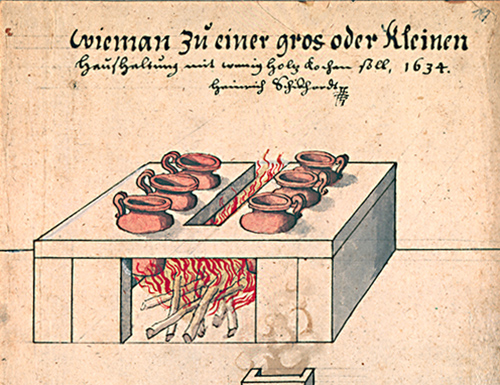 wieman Zu einer gros oder Kleinen
Haushaltung mit wenig Holz Kochen soll, 1634.
Heinrich Schickhardt